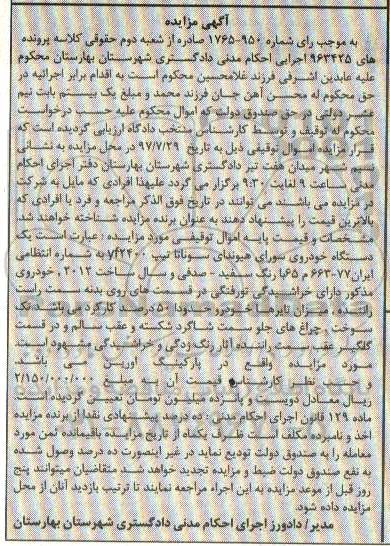 آگهی مزایده
به موجب رای شماره ۹۵۰-۱۷۶۵ صادره از شعبه دوم حقوقی کلاسه پرونده
های ۹۶۳۴۲۵ اجرایی احکام مدنی دادگستری شهرستان بهارستان محکوم
علیه عابدین اشرفی فرزند غلامحسین محکوم است به اقدام برابر اجرائیه در
حق محکوم له محسن آهن جان فرزند محمد و مبلغ یک بیستم بابت نیم
عشر دولتی در حق صندوق دولت که اموال محکوم علیه حسب درخواست
محکوم له توقیف و توسط کارشناس منتخب دادگاه ارزیابی گردیده است که
قرار مزایده اموال توقیفی ذیل به تاریخ ۹۷/۷/۲۹ در محل مزایده به نشانی
نسیم شهر میدان هفت تیر دادگستری شهرستان بهارستان دفتر اجرای احکام
مدنی ساعت ۹ لغایت ۹:۳۰ برگزار می گردد علیهذا افرادی که مایل به شرکت
در مزایده می باشند می توانند در تاریخ فوق الذکر مراجعه و فرد یا افرادی که
بالاترین قیمت را پیشنهاد دهند به عنوان برنده مزایده شناخته خواهند شد.
مشخصات و قیمت پایه اموال توقیفی مورد مزایده : عبارت است یک
دستگاه خودروی سواری هیوندای سوناتا تیپ ۷۴۲۴۰۰ به شماره انتظامی
ایران۷۷-۶۶۳ م ۶۵با رنگ سفید - صدفی و سال ساخت ۲۰۱۲ . خودروی
مذکور دارای خراشیدگی تورفتگی در قسمت های روی بدنه سمت راست
راننده ، میزان تایرها خودرو حدودا ۵۰ درصد کارکرد می باشد.تک
سوخت و چراغ های جلو سمت شاگرد شکسته و عقب سالم و در قسمت
گلگیر عقب سمت راننده آثار رنگ زدگی و خراشیدگی مشهود است.
مورد مزایده واقع در پارکینگ اورین می باشد
و حسب نظر کارشناس قیمت آن به مبلغ ۲/۱۵۰/۰۰۰/۰۰۰
ریال معادل دویست و پانزده میلیون تومان تعیین گردیده است
ماده ۱۲۹ قانون اجرای احکام مدنی : ده درصد پیشنهادی نقدا از برنده مزایده
اخذ و نامبرده مکلف است ظرف یکماه از تاریخ مزایده باقیمانده ثمن مورد
معامله را به صندوق دولت تودیع نماید در غیر اینصورت ده درصد وصول شده
به نفع صندوق دولت ضبط و مزایده تجدید خواهد شد متقاضیان میتوانند پنج
روز قبل از موعد مزایده به این اجراء مراجعه نمایند تا ترتیب بازدید آنان از محل
مزایده داده شود.
مدیر/ دادورز اجرای احکام مدنی دادگستری شهرستان بهارستان